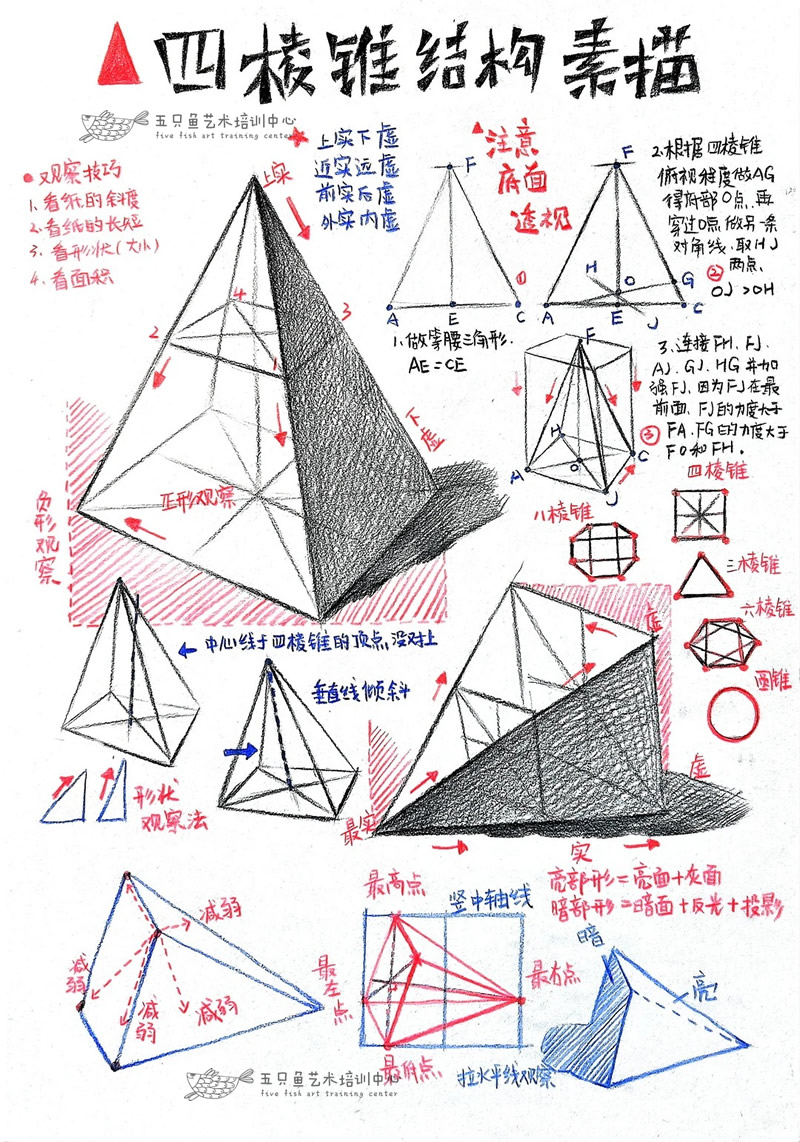 四棱锥结构素描
五只鱼艺术培训中心
five fish art training center
观察技巧
1.看纸的斜度
2.看纸的长短
3.看形状(大小)
4.看面积
上实
上实下虚
近实远虚
前实后虚
外实内虚
注意
底面
透视
F
A
E
C
①
1.做等腰三角形.
AE=CE
F
H
O
G
A
E
J
C
2.根据四棱锥
俯视程度做AG
得底部O点,再
穿过O点做另一条
对角线,取HJ
两点.
②
OJ>OH
F
H
A
O
J
C
3.连接FH、FJ、
AJ、GJ、HG并加
强FJ,因为FJ在最
前面、FJ的力度大于
③
FA、FG的力度大于
FO和FH.
1
2
3
4
下虚
正形观察
负形观察
四棱锥
八棱锥
三棱锥
六棱锥
圆锥
中心线于四棱锥的顶点,没对上
垂直线倾斜
形状
观察法
虚
虚
最实
实
亮部形=亮面+灰面
暗部形=暗面+反光+投影
减弱
减弱
减弱
减弱
最高点
竖中轴线
最左点
最右点
最低点
拉水平线观察
暗
亮
五只鱼艺术培训中心
five fish art training center